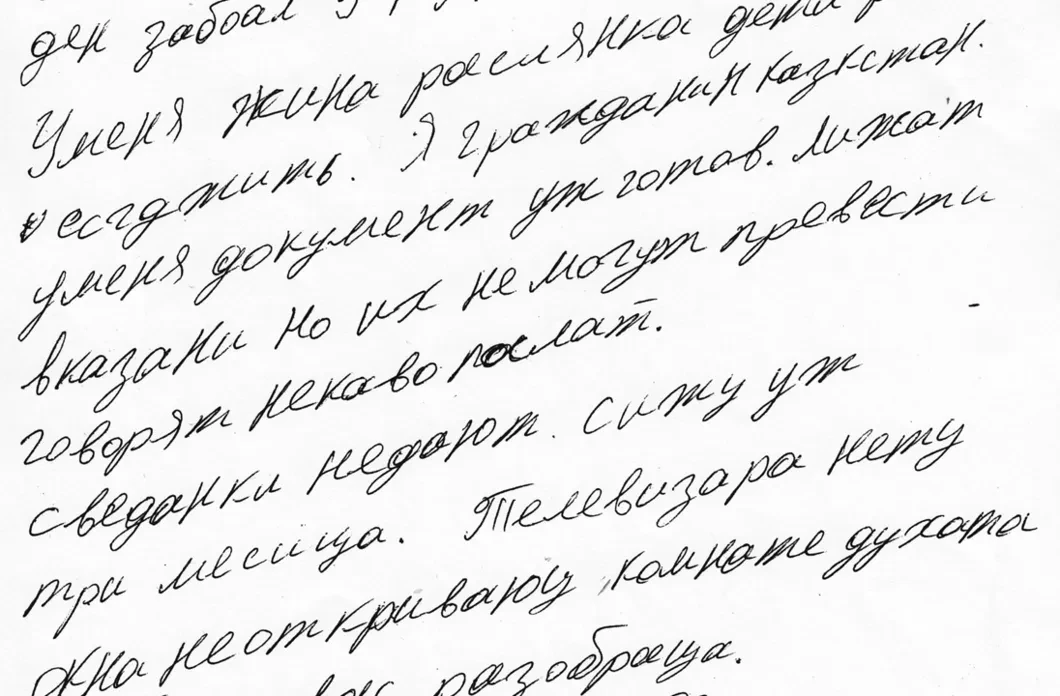 ден забрал
Уменя жина расиянка дети
есгджить. Я гражданин казкстан.
уменя документ уж готов. лижат
вказани но их немогут превести
говорят некаво послат.
сведанки недают. сижу уж
три месица. Телевизара нету
Окна неоткривающ комнате духата
вас разобраща.